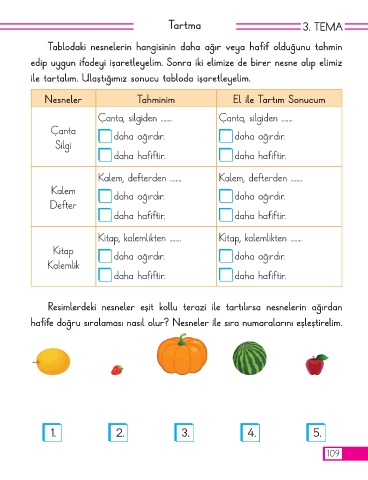 Tartma
3. TEMA
Tablodaki nesnelerin hangisinin daha ağır veya hafif olduğunu tahmin
edip uygun ifadeyi işaretleyelim. Sonra iki elimize de birer nesne alıp elimiz
ile tartalım. Ulaştığımız sonucu tabloda işaretleyelim.
Nesneler Tahminim El ile Tartım Sonucum
Çanta
Silgi
Çanta, silgiden .......
daha ağırdır.
daha hafiftir.
Çanta, silgiden .......
daha ağırdır.
daha hafiftir.
Kalem
Defter
Kalem, defterden .......
daha ağırdır.
daha hafiftir.
Kalem, defterden .......
daha ağırdır.
daha hafiftir.
Kitap
Kalemlik
Kitap, kalemlikten .......
daha ağırdır.
daha hafiftir.
Kitap, kalemlikten .......
daha ağırdır.
daha hafiftir.
Resimlerdeki nesneler eşit kollu terazi ile tartılırsa nesnelerin ağırdan
hafife doğru sıralaması nasıl olur? Nesneler ile sıra numaralarını eşleştirelim.
1. 2. 3. 4. 5.
109